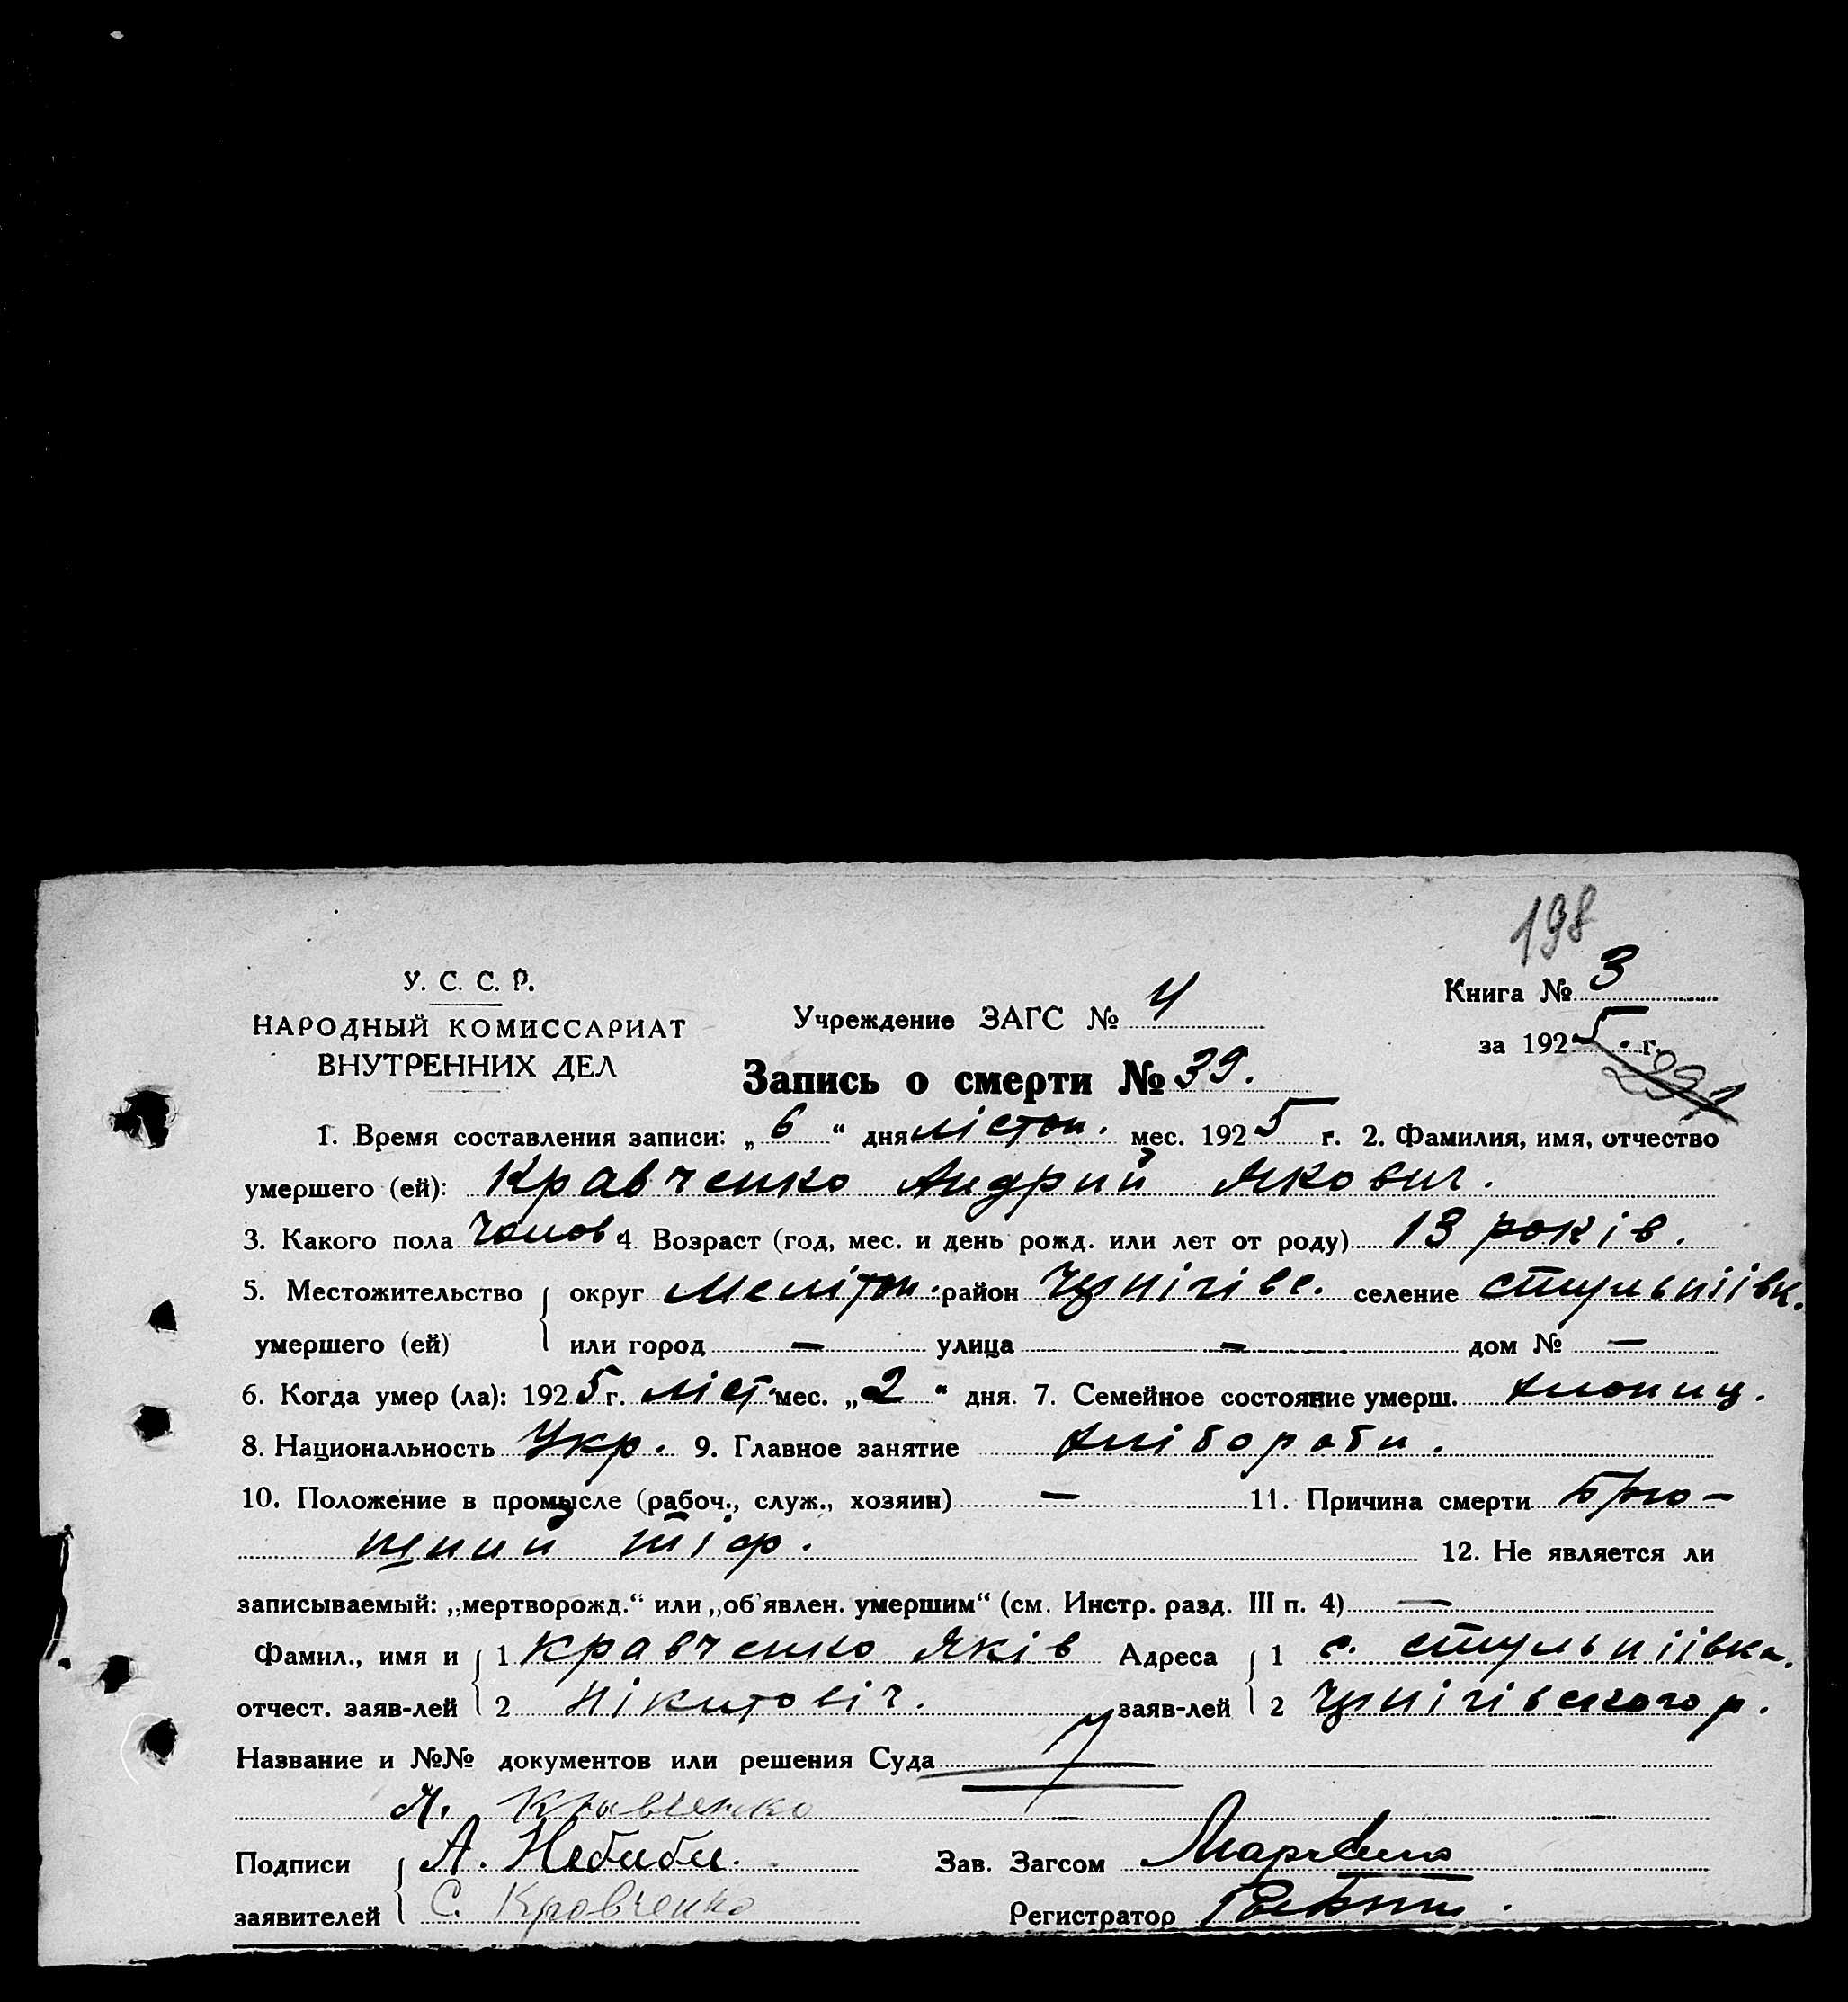 198
У. С. С. Р.
НАРОДНЫЙ КОМИССАРИАТ
ВНУТРЕННИХ ДЕЛ
Учреждение ЗАГС № 4
Книга № 3
за 1925 г.
291
Запись о смерти № 39.
1. Время составления записи: „ 6 “ дня лістоп. мес. 1925 г. 2. Фамилия, имя, отчество
умершего (ей): Кравченко Андрий Якович.
3. Какого пола Чолов 4. Возраст (год, мес. и день рожд. или лет от роду) 13 років.
5. Местожительство округ Меліт. район Чернігівс. селение Стульніівк.
умершего (ей) или город — улица — дом № —
6. Когда умер (ла): 1925 г. Ліст. мес. „ 2 “ дня. 7. Семейное состояние умерш. хлопиц.
8. Национальность Укр. 9. Главное занятие хліборобы.
10. Положение в промысле (рабоч., служ., хозяин) — 11. Причина смерти Брю-
шний тіф. 12. Не является ли
записываемый: „мертворожд.“ или „об'явлен. умершим“ (см. Инстр. разд. III п. 4) —
Фамил., имя и 1 Кравченко Яків Адреса 1 с. Стульніівка.
отчест. заяв-лей 2 Нікитовіч. заяв-лей 2 Чернігівського р.
Название и №№ документов или решения Суда
Я. Кравченко
Подписи А. Зав. Загсом
заявителей С. Кровченко Регистратор